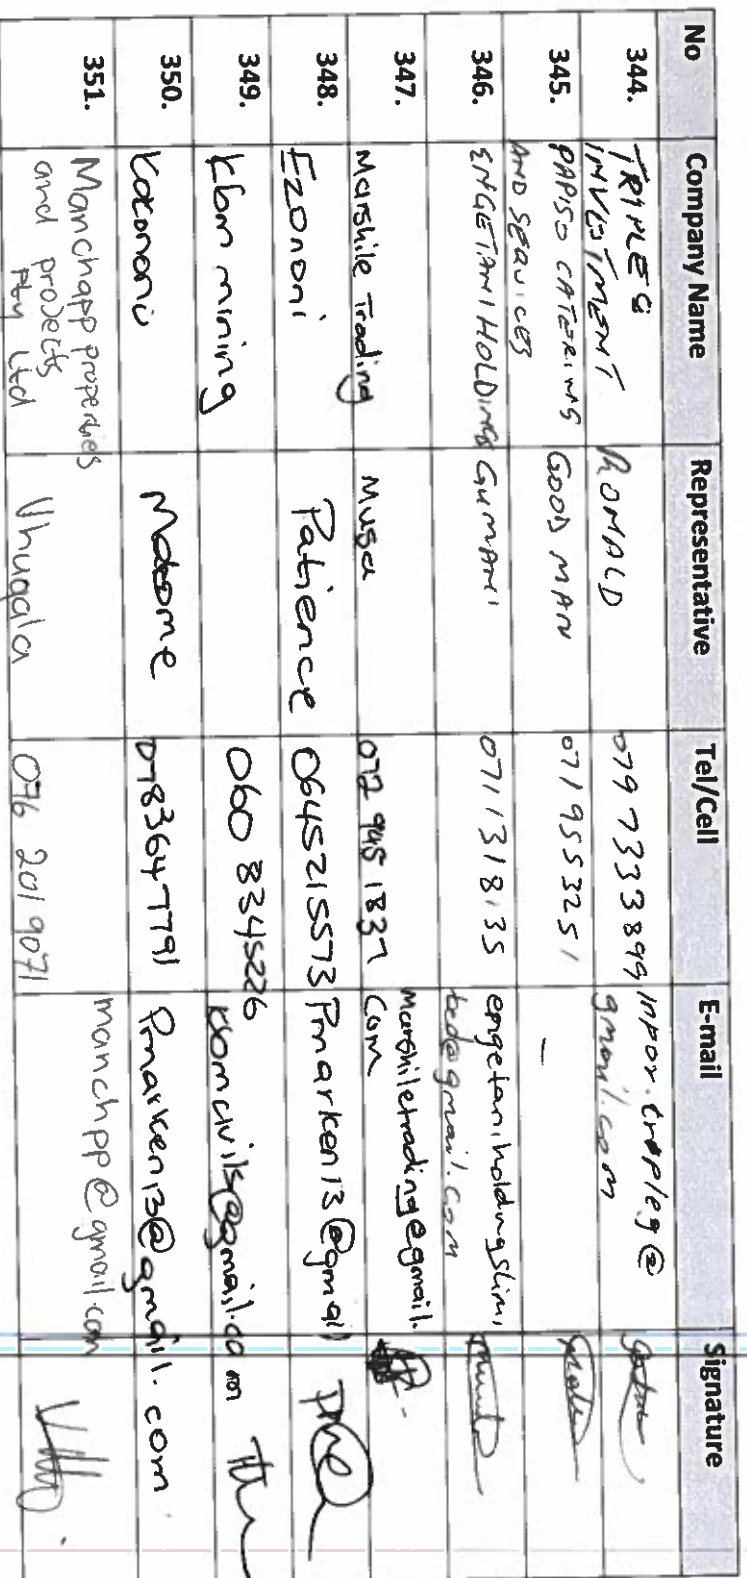 No Company Name Representative Tel/Cell E-mail Signature
344. TRIPLE G INVESTMENT RONALD 079 7333899 gmail.com
345. PAPISO CATERING AND SERVICES GOOD MAN 0719553251 –
346. ENGETANI HOLDINGS GUMANI 0711318135 engetaniholdingslimi
ted@gmail.com
347. Marshile Trading Musa 072 945 1837 marshiletrading@gmail.
com
348. Ezononi Patience 0645215573 Pmarken13@gmail
349. Kbm mining 060 8345226 kbmcivils@gmail.com
350. Matome 0783647791 Pmarken13@gmail.com
351. Manchapp properties
and projects
Pty Ltd Vhugala 076 201 9071 manchpp@gmail.com